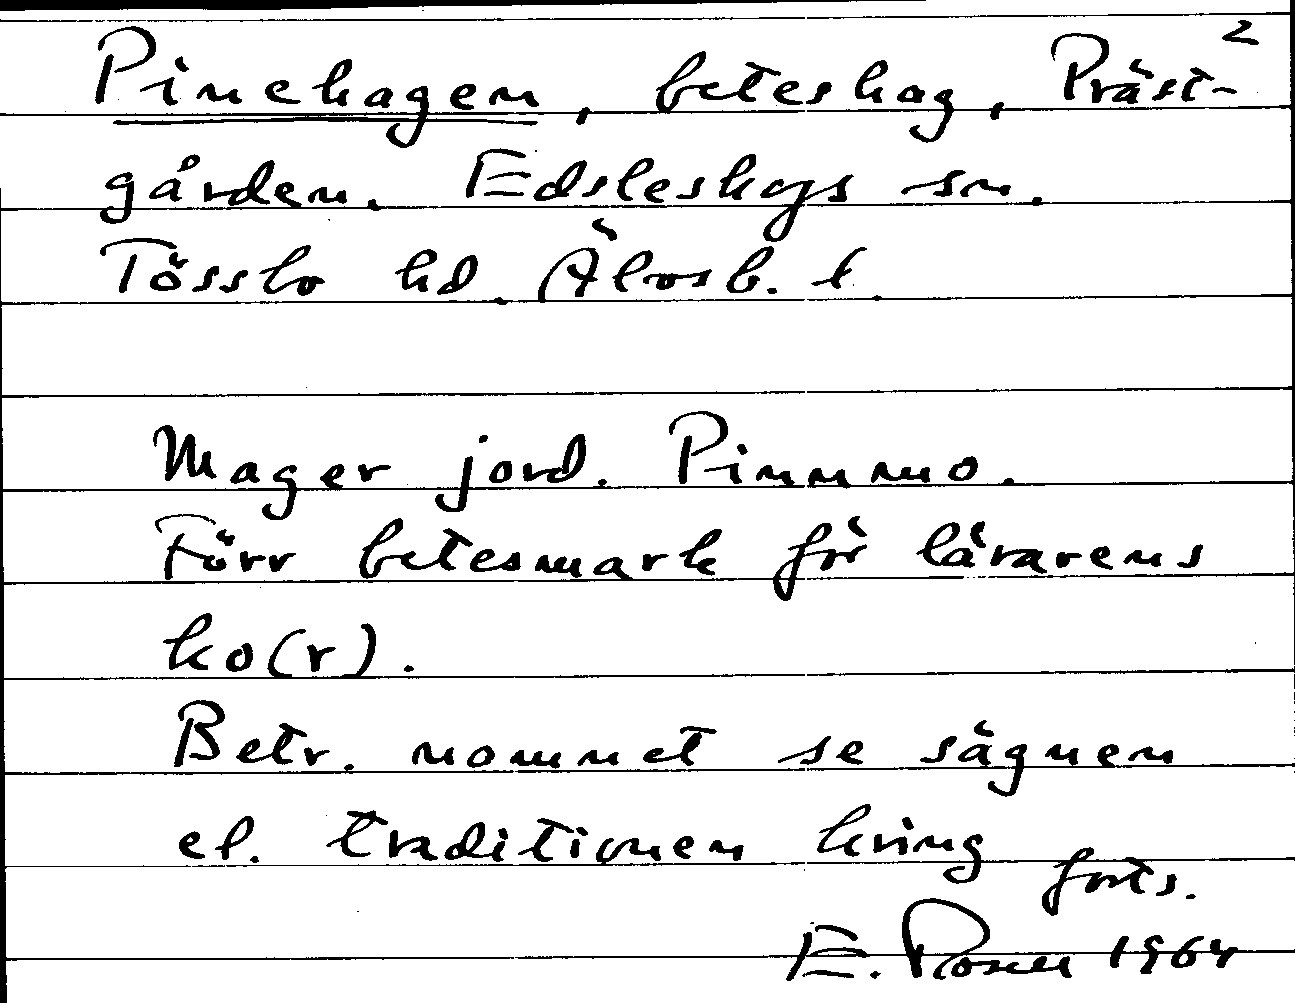 Pinehagen, beteshag, Präst-²
gården. Edsleskogs sn.
Tössbo hd. Älvsb. l.
Mager jord. Pinnmo.
Förr betesmark för lärarens
ko(r).
Betr. nomnet se sägnen
el. traditionen kring
forts.
E. Rosén 1964